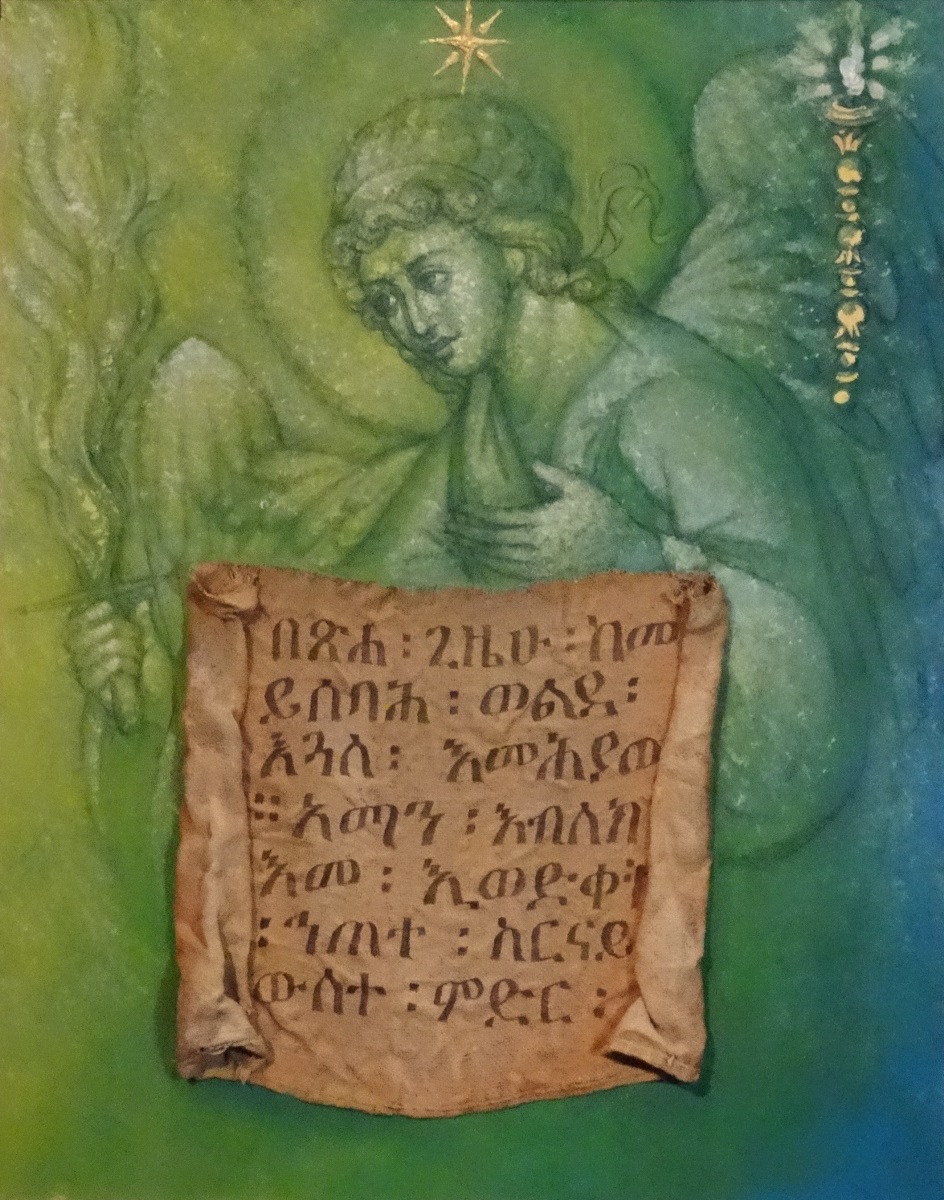 በጽሐ ፡ ጊዜሁ ፡ ከመ
ይሰባሕ ፡ ወልደ ፡
እጓለ ፡ እመሕያው
። አማን ፡ እብለክ
እመ ፡ ኢወድቀት
፡ ኅጠተ ፡ ስርናይ
ውስተ ፡ ምድር ፡